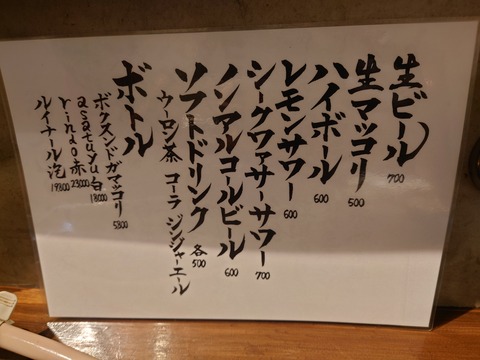 生ビール 700
生マッコリ 500
ハイボール 600
レモンサワー 600
シークワァサーサワー 700
ノンアルコールビール 600
ソフトドリンク 各500
ウーロン茶 コーラ ジンジャーエール
ボトル
ボクスンドガマッコリ 5800
asatuyu白 18000
rindo赤 23000
ルイナール泡 19800